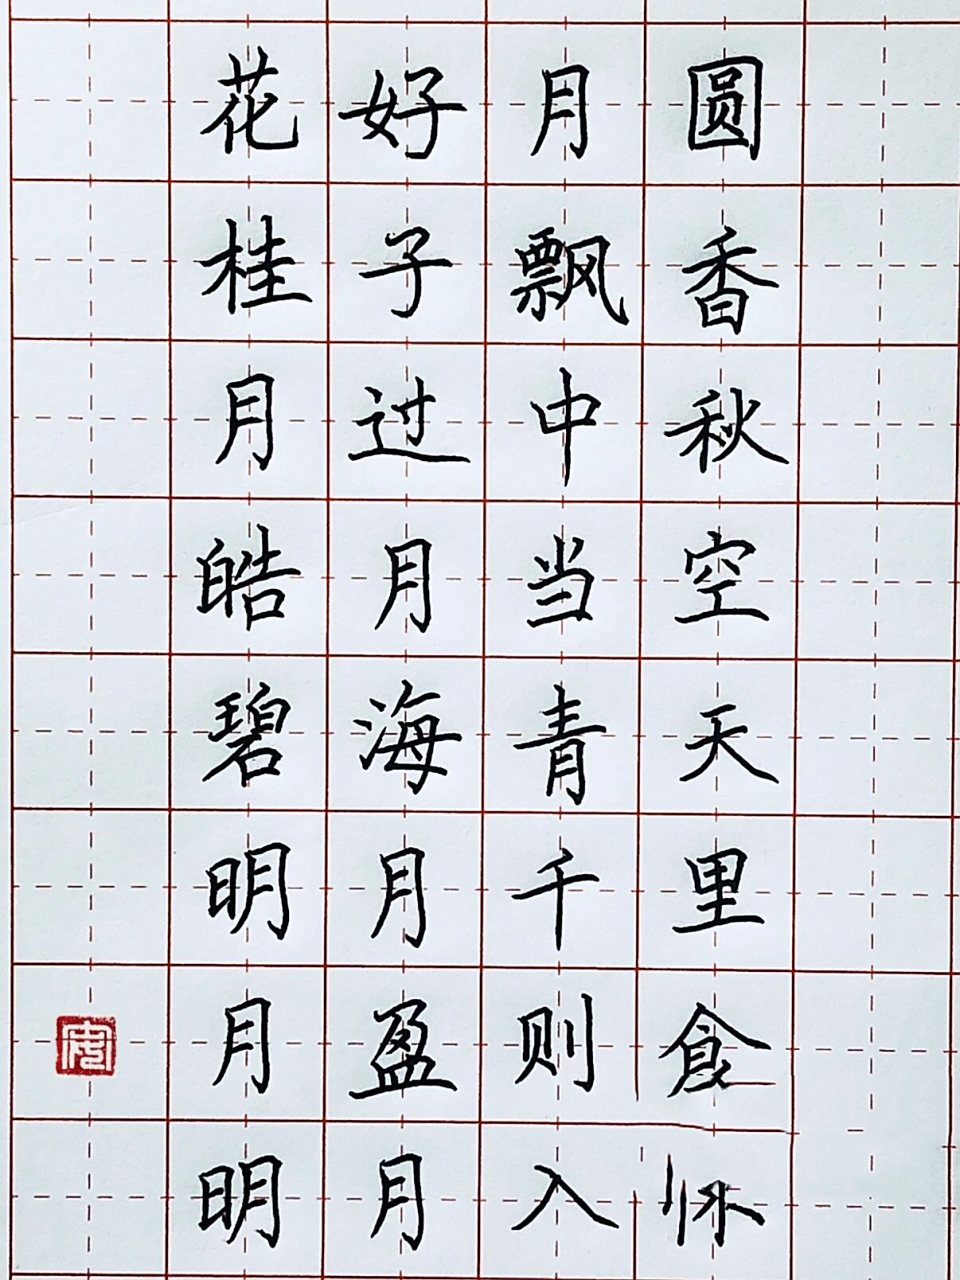 花好月圆
桂子飘香
月过中秋
皓月当空
碧海青天
明月千里
月盈则食
明月入怀